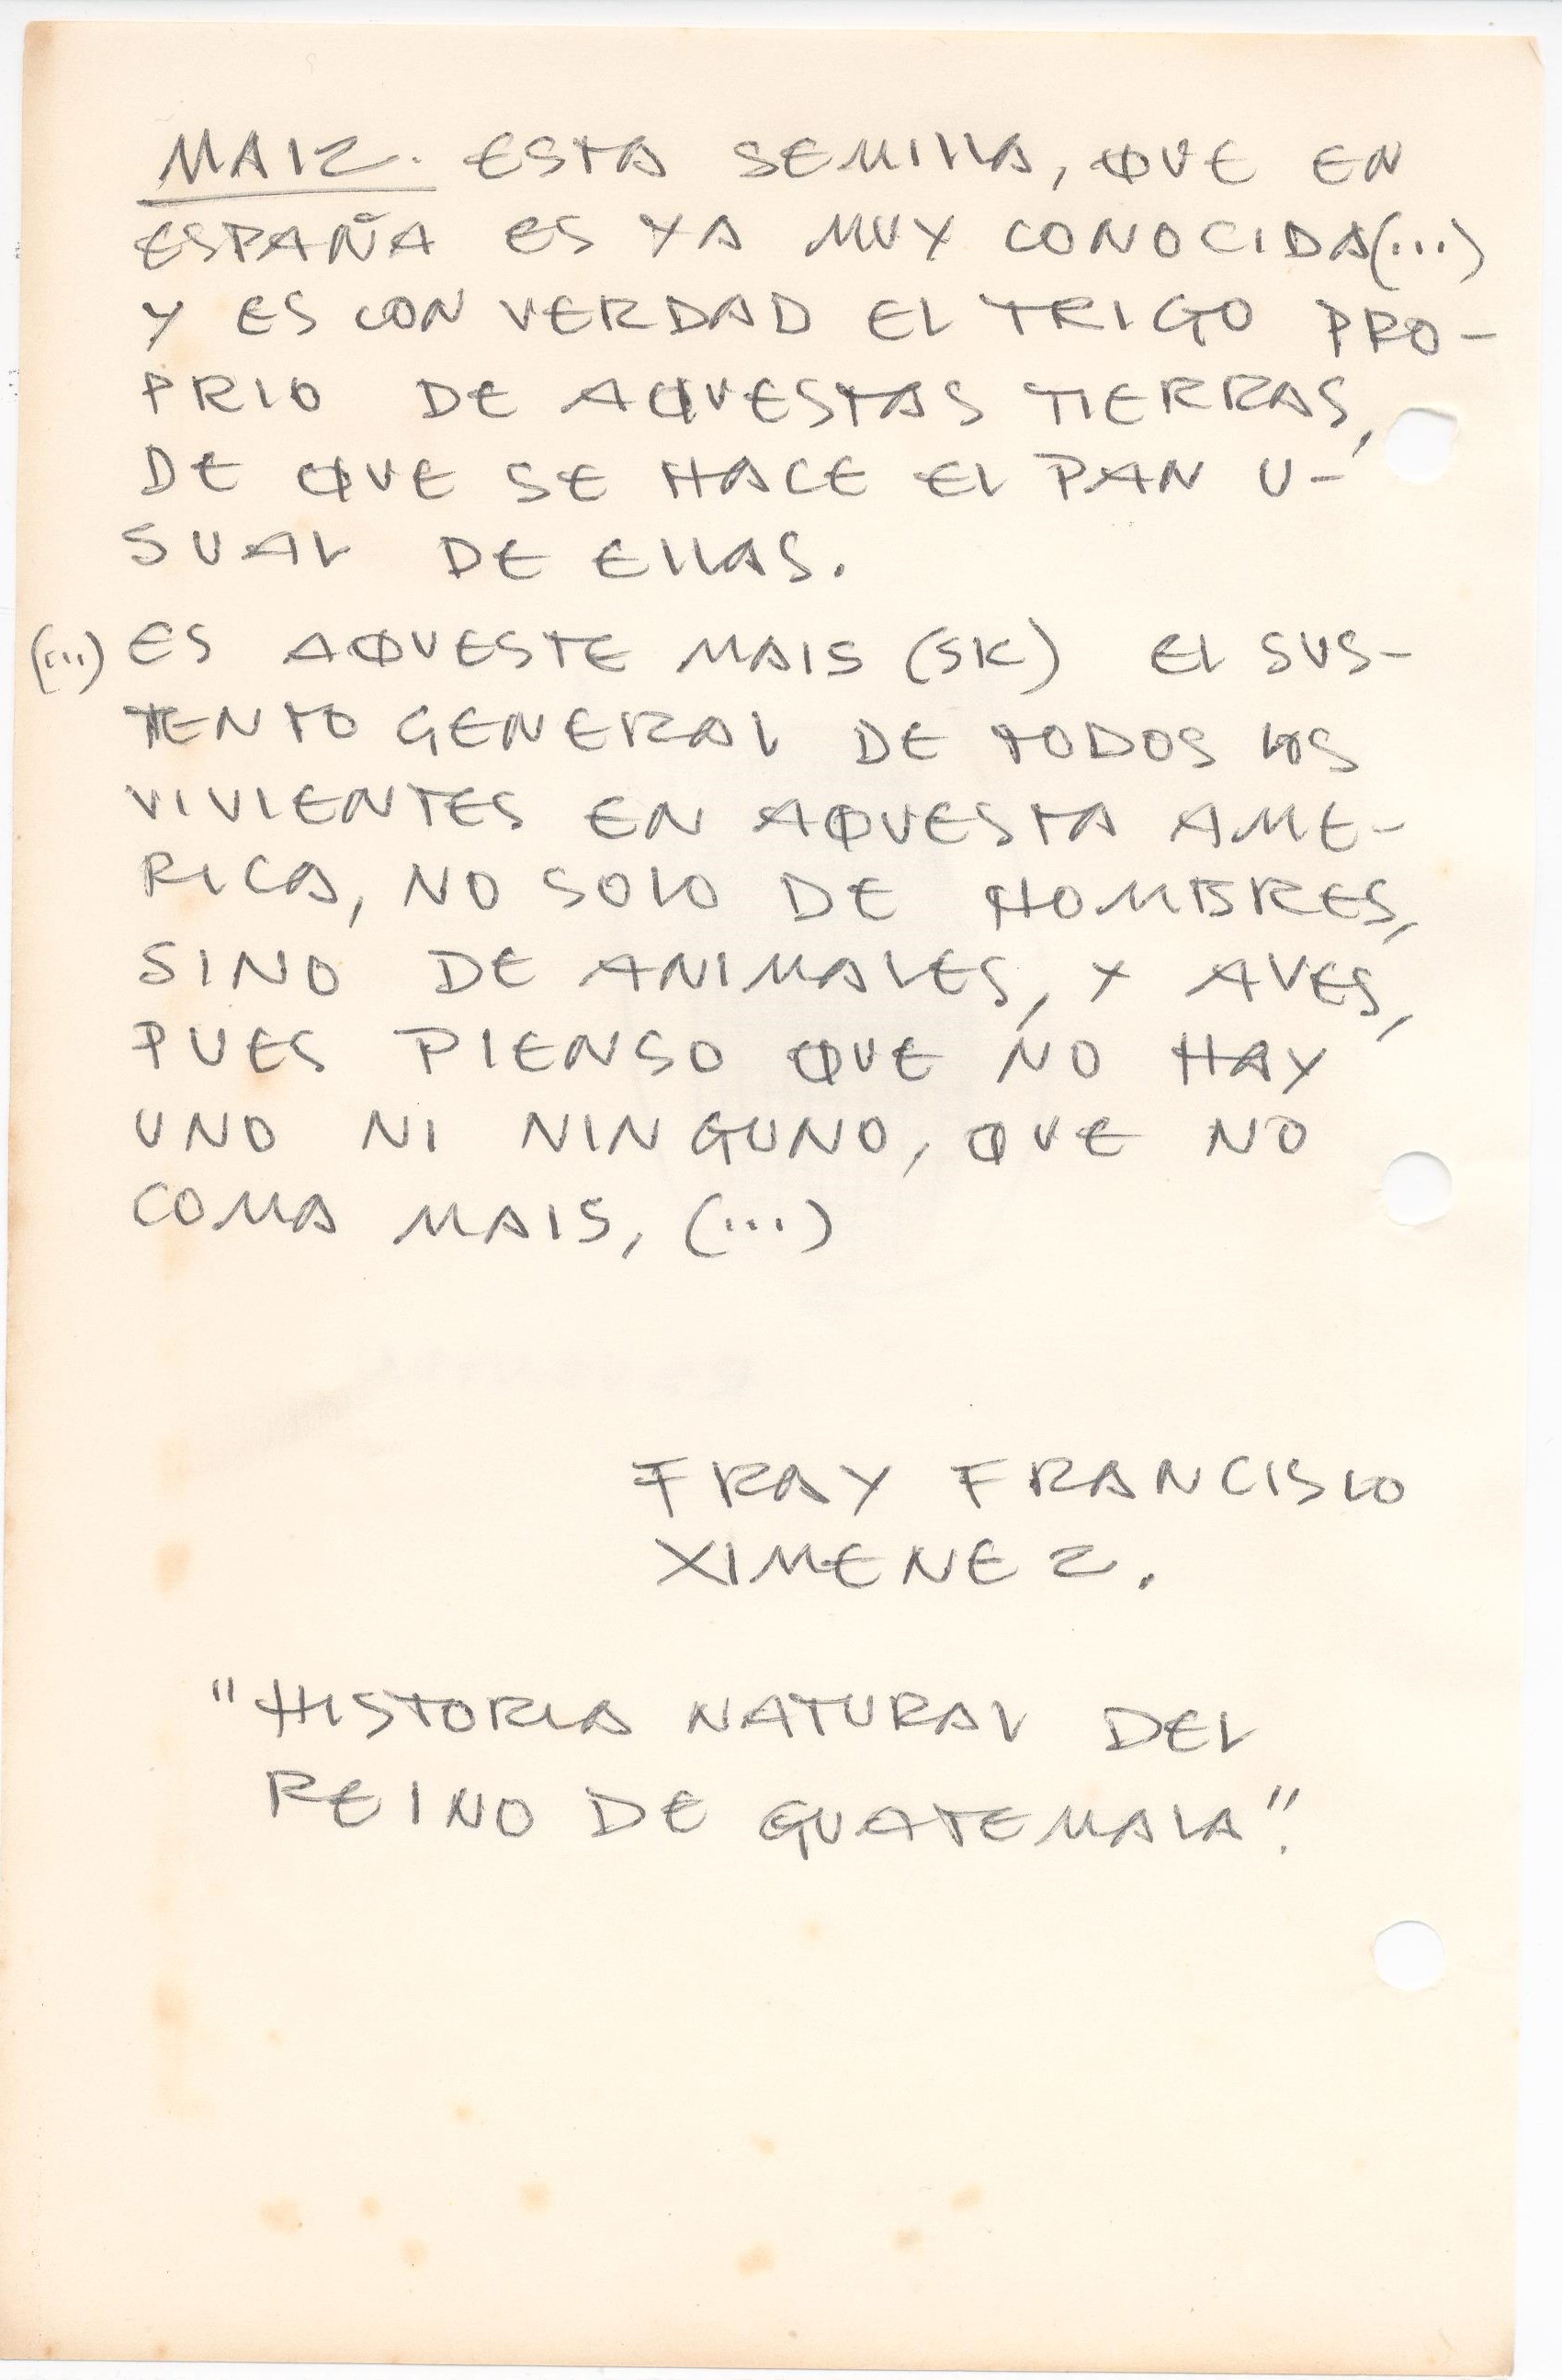 MAIZ. ESTA SEMILLA, QUE EN
ESPAÑA ES YA MUY CONOCIDA(...)
Y ES CON VERDAD EL TRIGO PRO-
PRIO DE AQUESTAS TIERRAS,
DE QUE SE HACE EL PAN U-
SUAL DE ELLAS.
(...) ES AQUESTE MAIS (SIC) EL SUS-
TENTO GENERAL DE TODOS LOS
VIVIENTES EN AQUESTA AME-
RICA, NO SOLO DE HOMBRES,
SINO DE ANIMALES, Y AVES,
PUES PIENSO QUE NO HAY
UNO NI NINGUNO, QUE NO
COMA MAIS, (...)
FRAY FRANCISCO
XIMENEZ.
"HISTORIA NATURAL DEL
REINO DE GUATEMALA".